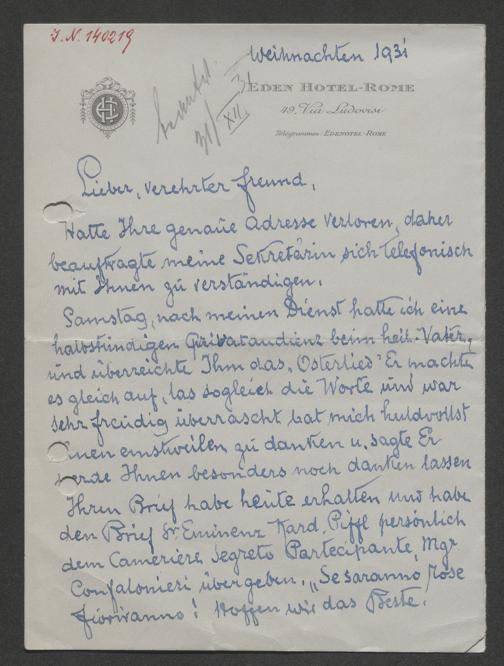 J. N. 140219
Weihnachten 1931
EDEN HOTEL-ROME
49, Via Ludovisi
Télégrammes: EDENOTEL-ROME
31/XII 31
Lieber, verehrter Freund,
Hatte Ihre genaue Adresse verloren, daher
beauftragte meine Sekretärin sich telefonisch
mit Ihnen zu verständigen.
Samstag, nach meinen Dienst hatte ich eine
halbstündigen Privataudienz beim heil. Vater,
und überreichte Ihm das „Osterlied" Er machte
es gleich auf, las sogleich die Worte und war
sehr freudig überrascht bat mich huldvollst
Ihnen einstweilen zu danken u. sagte Er
werde Ihnen besonders noch danken lassen
Ihren Brief habe heute erhalten und habe
den Brief Sr Eminenz Kard. Piffl persönlich
dem Cameriere Segreto Partecipante, Mgr
Confalonieri übergeben. „Se saranno rose
fioriranno! Hoffen wir das Beste.